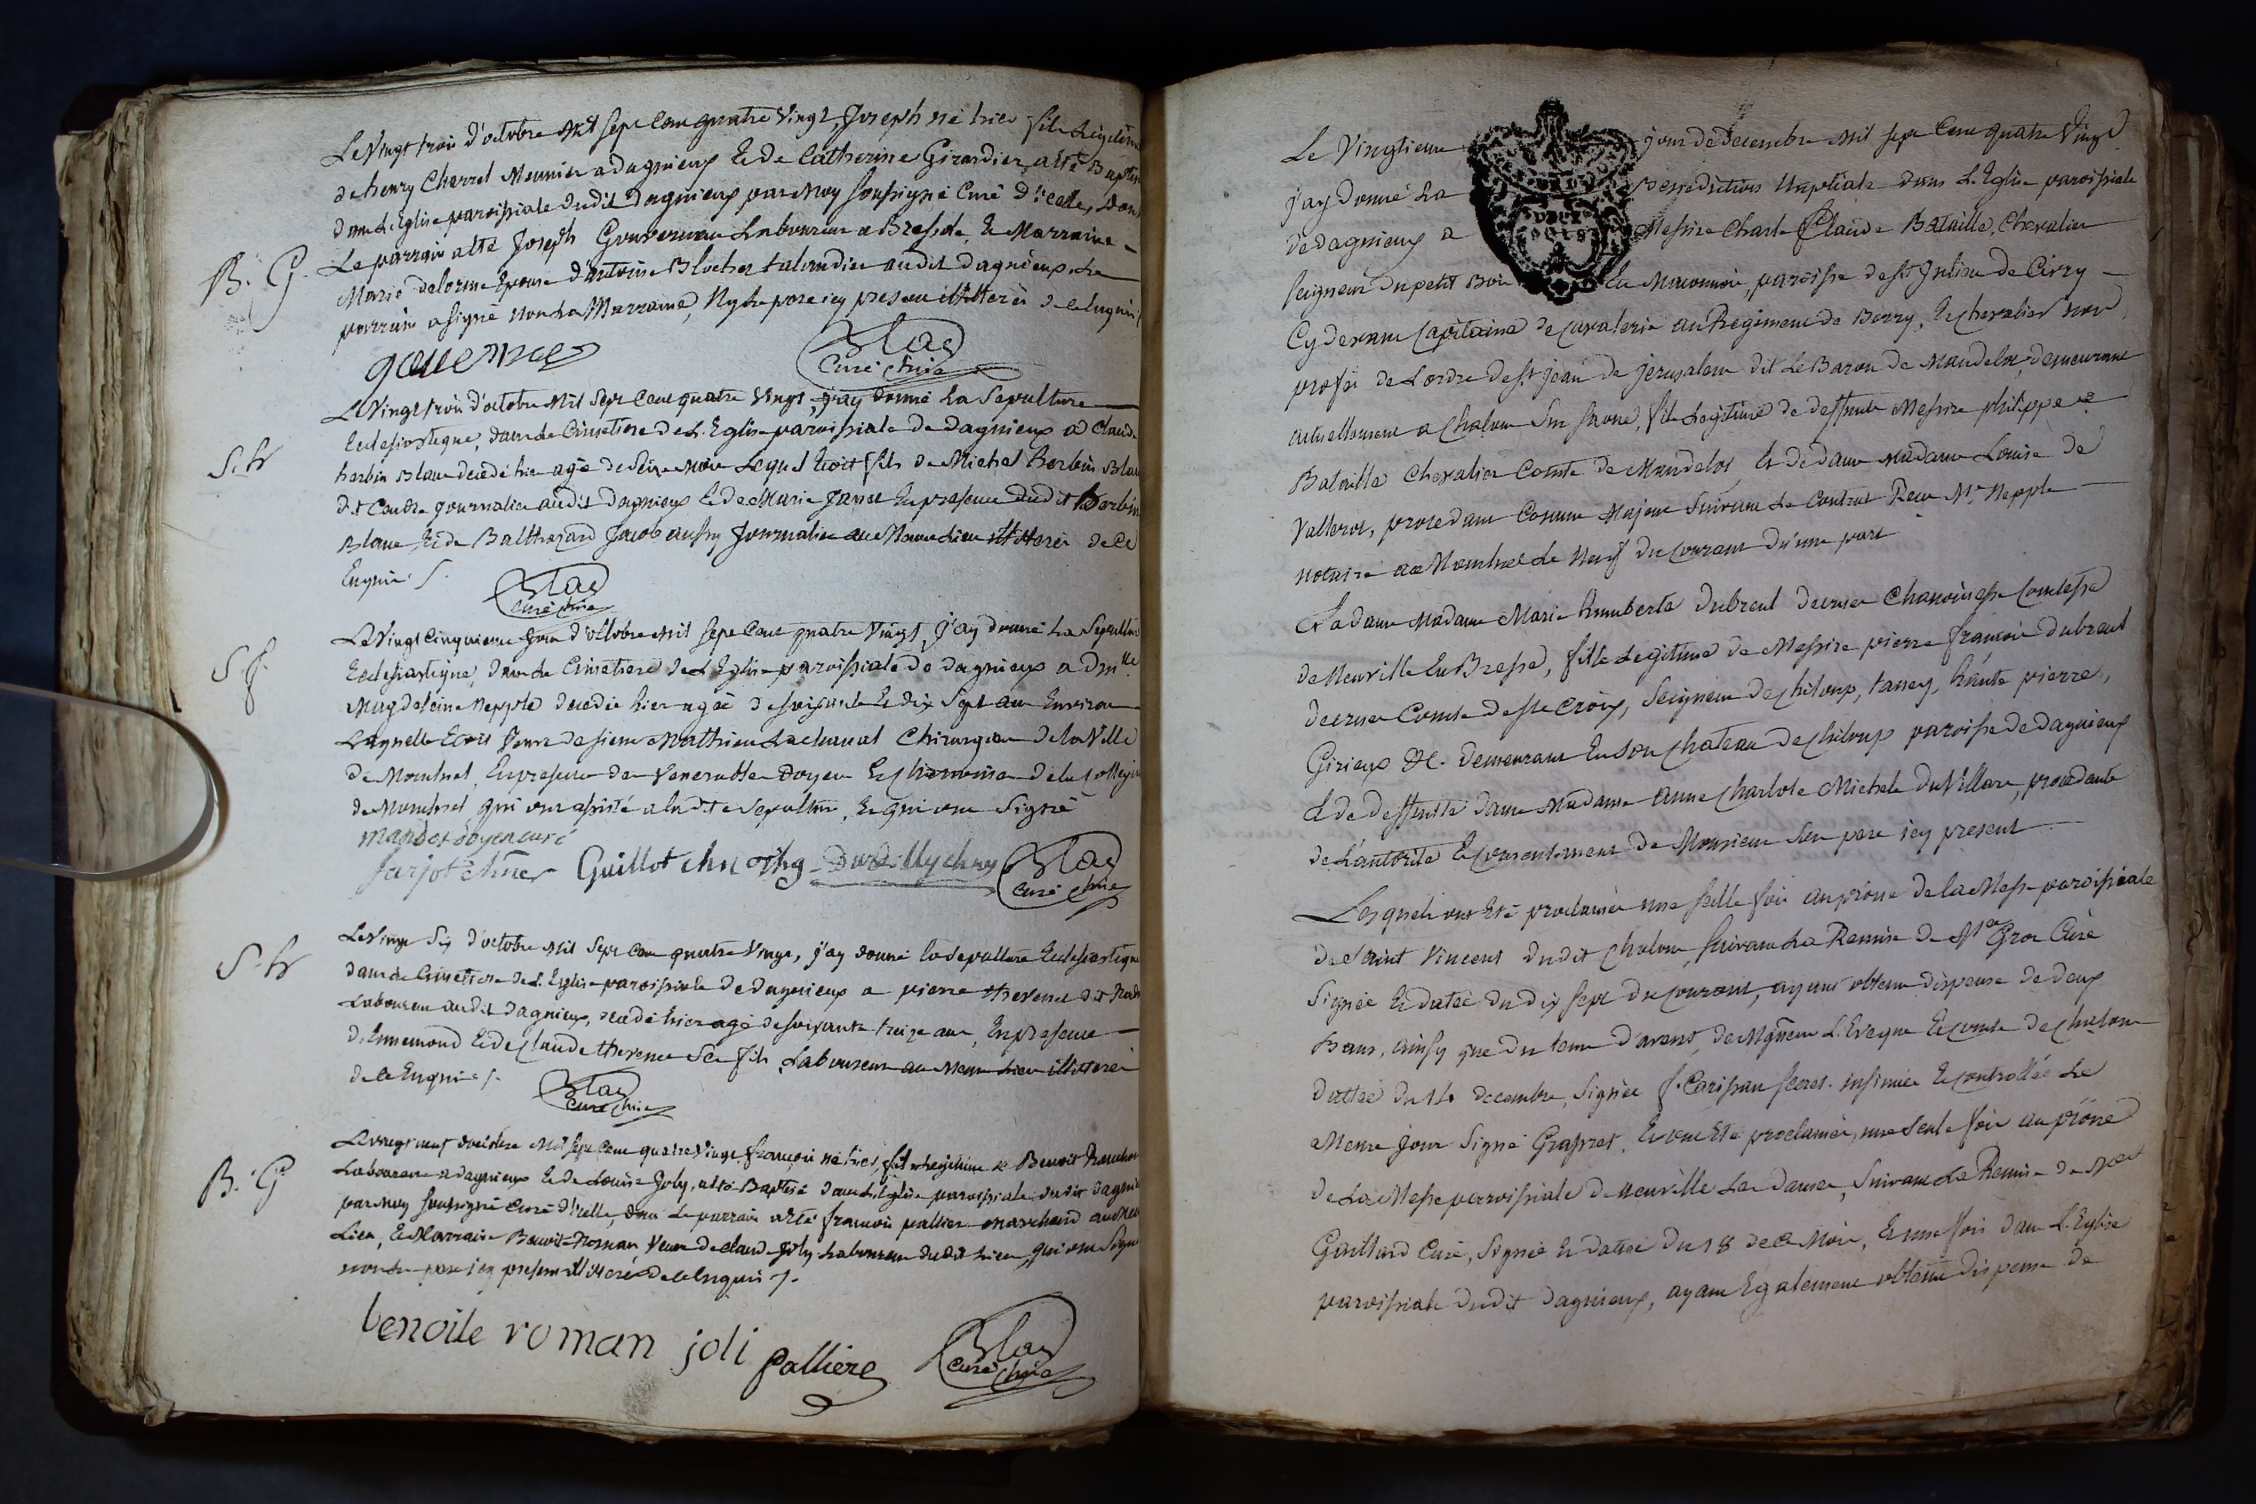 Le Vingt trois d'octobre Mil sept Cent quatre Vingt, Joseph né hier fils Légitime
de henry Charrel Meunier a dagnieux Et de Catherine Girardier, a été Baptisé
dans L'Eglise paroissiale dudit Dagnieux par Moy soussigné Curé d'icelle, dont
B. G. Le parrain a été Joseph Gouverneur Laboureur a Bressole, Et Marraine
Marie delorme Epouse d'antoine Blochet taliandier audit dagnieux, Le
parrain a signé non La Marraine, Ny Le pere icy present illitterés de ce Enquis
gouverneur
Blas
Curé chne
Le Vingt trois d'octobre Mil Sept Cent quatre Vingt, j'ay donné La Sepulture
Eclesiastique, dans Le Cimetiere de L'Eglise paroissiale de dagnieux a Claude
S. br
herbin Blanc decedé hier agé de seize mois Lequel Etoit fils de Michel herbin Blanc
dit journalier audit dagnieux Et de Marie Et en presence dudit herbin
Blanc, Et de Balthazard Jacob aussy Journalier au Meme Lieu illitterés de ce
Enquis
Blas
curé chne
Le Vingt Cinquieme Jour d'octobre Mil sept Cent quatre Vingt, J'ay donné La Sepulture
S. f.
Eclesiastique, dans Le Cimetiere de L'Eglise paroissiale de dagnieux a Dmlle
Magdeleine Nepple decedée hier agée de soixante Et dix Sept ans Environ
Laquelle Etoit Veuve de sieur Mathieu Lachanal Chirurgien de la Ville
de Montluel, En presence des Venerables doyen Et Chanoines de la Collegiale
de Montluel qui ont assisté a ladite Sepulture, Et qui ont Signé
mandot doyen curé
farjot chne Guillot chne Durdilly chne
Blas
Curé chne
Le Vingt Six d'octobre Mil Sept Cent quatre Vingt, j'ay donné la Sepulture Eclesiastique
S. br
dans Le Cimetiere de L'Eglise paroissiale de Dagnieux a pierre thevenet dit
Laboureur audit dagnieux, decedé hier agé de soixante treize ans, En presence
d'Ennemond Et de Claude thevenet Ses fils Laboureurs au Meme Lieu illitterés
de ce Enquis
Blas
Curé chne
Le vingt neuf d'octobre Mil Sept Cent quatre Vingt françois né hier, fils Legitime de Benoit
B. G
Laboureur a dagnieux Et de Louise Joly, a été Baptisé dans L'Eglise paroissiale dudit dagnieux
par Moy soussigné Curé d'icelle, dont Le parrain a été françois pallier Marchand au
Lieu, Et Marraine Benoite Roman Veuve de claude Joly Laboureur dudit Lieu, qui ont Signé
non Le pere icy present illitteré de ce Enquis
benoite roman joli palliere
Blas
Curé chne
Le Vingtieme jour de Decembre Mil sept Cent quatre Vingt
j'ay donné La Benediction Nuptiale dans L'Eglise paroissiale
de dagnieux a Messire Charle Claude Bataille, Chevalier
Seigneur du petit Bois En Maconnois, paroisse de St Julien de Civry
Cy devant Capitaine de Cavalerie au Regiment de Berry, Et Chevalier non
profés de L'ordre de St Jean de Jerusalem dit Le Baron de Mandelot, demeurant
actuellement a Chalon Sur Saone, fils Legitime de deffunt Messire philippe
Bataille Chevalier Comte de Mandelot, Et de dame Madame Louise de
Valleros, procedant Comme Majeur Suivant Le Contrat Receu Mr. Nepple
notaire a Montluel Le Neuf du Courant d'une part
Et a dame Madame Marie humberte dubreul decrues Chanoinesse Comtesse
de Neuville En Bresse, fille Legitime de Messire pierre françois dubreul
decrues Comte de Ste Croix, Seigneur de Chiloup, tanney, haute pierre,
Girieux &c. demeurant En Son Chateau de Chiloup paroisse de dagnieux
Et de deffunte dame Madame Anne Charlote Michele du Villars, procedante
de L'autorité Et Consentement de Monsieur Son pere icy present
Lesquels ont Eté proclamés une seulle fois au prone de la Messe paroissiale
de Saint Vincent dudit Chalon, Suivant La Remise de Mr Gros Curé
Signée Et datée du dix Sept du Courant, ayant obtenu dispense de deux
Bans, ainsy que du tems d'avent, de Mgneur L'Eveque Et Comte de Chalon
dattée du 14 decembre, Signée secret. insinuée Et controllée Le
Meme jour Signé Grapret. Et ont Eté proclamés, une Seule fois au prone
de La Messe paroissiale de Neuville Les dames, Suivant La Remise de Mr
Gaillard Curé, Signée Et datée du 18 de Ce Mois, Et une fois dans L'Eglise
paroissiale dudit dagnieux, ayant Egalement obtenu dispense de